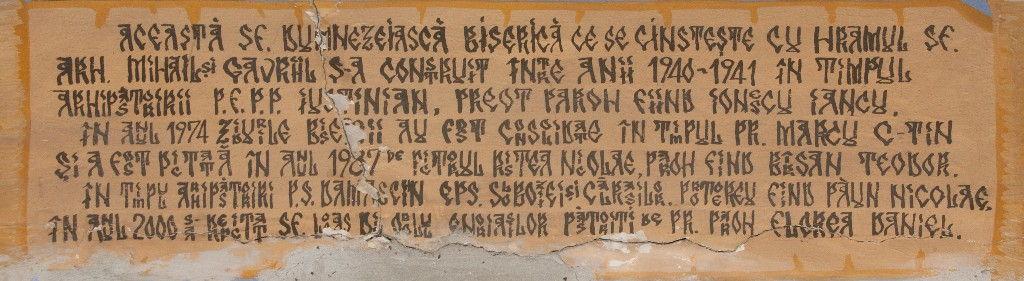 ACEASTĂ SF. DUMNEZEIASCĂ BISERICĂ CE SE CINSTEȘTE CU HRAMUL SF.
ARH. MIHAIL ȘI GAVRIIL S-A CONSTRUIT ÎNTRE ANII 1940-1941 ÎN TIMPUL
ARHIPĂSTORIRII P.F.P.P. IUSTINIAN, PREOT PAROH FIIND IONESCU IANCU.
ÎN ANUL 1974 ZIDURILE BISERICII AU FOST CONSOLIDATE ÎN TIMPUL PR. MARCU C-TIN
ȘI A FOST PICTATĂ ÎN ANUL 1987 DE PICTORUL NICOLAE, PAROH FIIND TEODOR.
ÎN TIMPUL ARHIPĂSTORIRI P.S. DAMASCHIN EPS. SLOBOZIEI ȘI CĂLĂRAȘILOR. PROTOEREU FIIND PĂUN NICOLAE.
ÎN ANUL 2000 S-A SF. LĂCAȘ ENORIAȘILOR PĂSTORIȚI DE PR. PAROH FLOREA DANIEL.